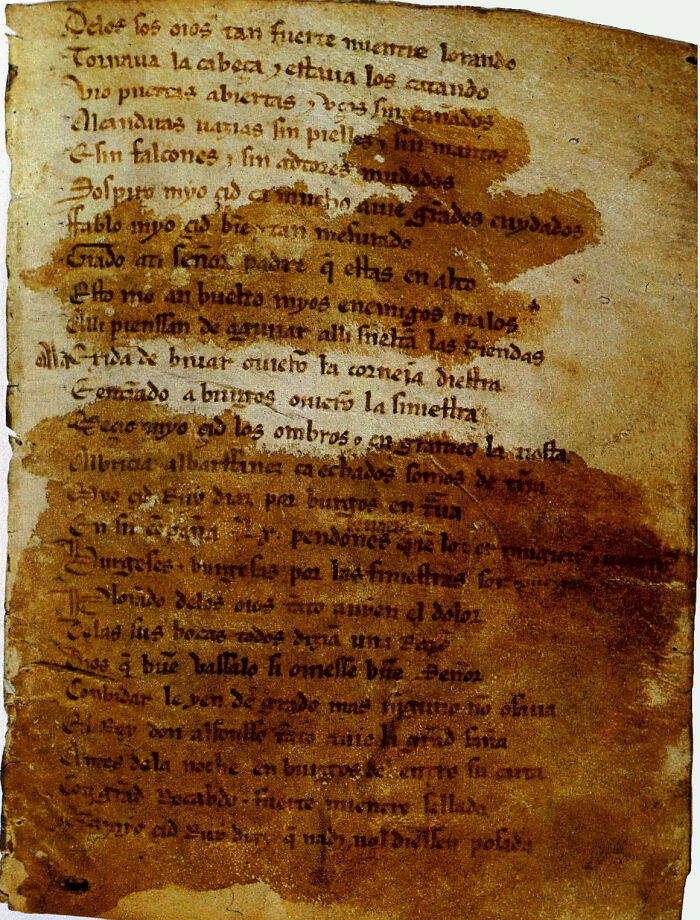 Delos sos oios tan fuerte mientre lorando
Tornaua la cabeça ⁊ estaua los catando
Vio puertas abiertas ⁊ vços sin cañados
Alcandaras uazias sin pielles ⁊ sin mantos
E sin falcones ⁊ sin adtores mudados
Sospiro myo çid ca mucho auie grãdes cuydados
Fablo myo çid biẽ ⁊ tan mesurado
Grado ati señor padre q̃ estas en alto
Esto me an buelto myos enemigos malos
Alli pienssan de aguiiar alli sueltã las Riendas
Ala Exida de biuar ouierõ la corneia diestra
E entrãdo a burgos ouierõ la siniestra
Meçio myo çid los ombros ⁊ en grameo la tiesta
Albricia albarffanez ca echados somos de tr̃ra
Myo çid Ruy diaz por burgos en traua
En su cõpaña .Lx. pendones
Burgeses ⁊ burgesas por las finiestras son
Plorãdo delos oios tãto auyen el dolor
Delas sus bocas todos dizian una Razõ
Dios q̃ buẽ vassalo si ouiesse buẽ Señor
Conbidar le yen de grado mas ninguno nõ osaua
El Rey don alfonsso tãto auie la grãd saña
Antes dela noche en burgos del entro su carta
Con grãd Recabdo ⁊ fuerte mientre sellada
Que a myo çid Ruy diaz q̃ nadi nol diessen posada